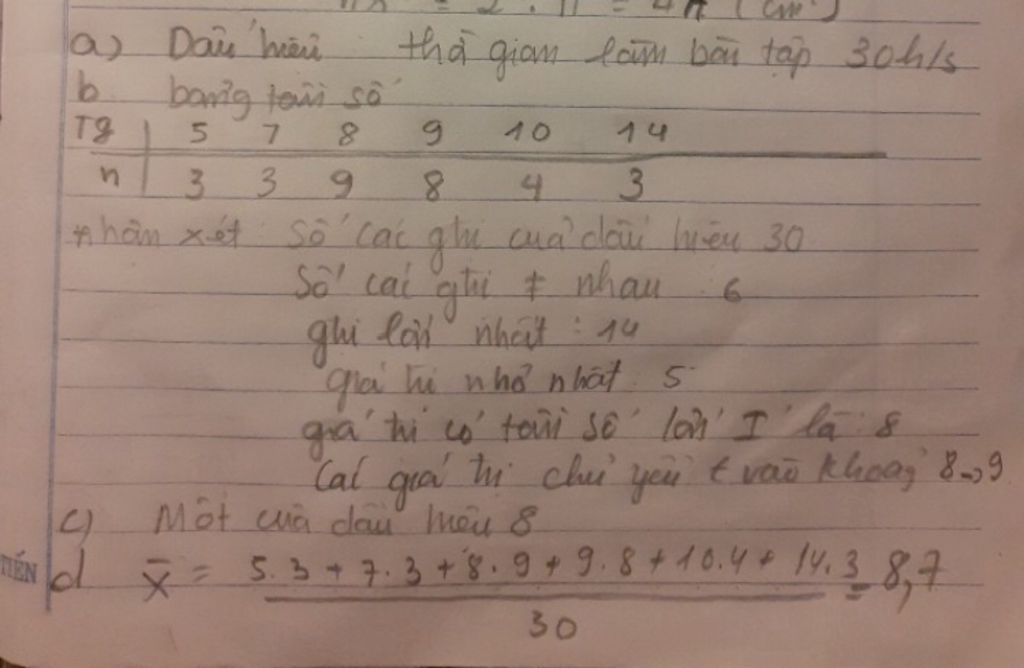 = 2 . π = 4π (cm²)
a) Dấu hiệu thời gian làm bài tập 30 h/s
b bảng tần số
Tg 5 7 8 9 10 14
n 3 3 9 8 4 3
Nhận xét Số các ghi của dấu hiệu 30
Số các ghi ≠ nhau 6
ghi lớn nhất : 14
giá trị nhỏ nhất 5
giá trị có tần số lớn I là 8
Các giá trị chủ yếu t vào khoảng 8->9
c) Mốt của dấu hiệu 8
d X̄ = 5.3 + 7.3 + 8.9 + 9.8 + 10.4 + 14.3 = 8,7
30
TIẾN